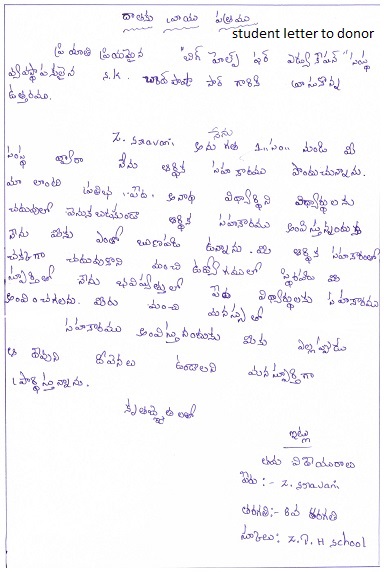 దాతకు రాయు పత్రము
student letter to donor
ప్రియాతి ప్రియమైన "బిగ్ హెల్ప్ ఫర్ ఎడ్యుకేషన్" సంస్థ
వ్యవస్థాపకులైన S.K. సార్ గారికి వ్రాయుచున్న
ఉత్తరము.
నేను
Z. sravani అను గత 1 సం... నుండి మీ
సంస్థ ద్వారా నేను ఆర్థిక సహకారము పొందుచున్నాను.
మా లాంటి ప్రతిభ.. పేద.. అనాథ విద్యార్థిని విద్యార్థులను
చదువులో వెనుకబడకుండా ఆర్థిక సహకారము అందిస్తున్నందుకు
నేను మీకు ఎంతో రుణపడి ఉన్నాను. మీ ఆర్థిక సహకారంతో
చక్కగా చదువుకొని మంచి ఉద్యోగములో స్థిరపడి మీ
స్ఫూర్తితో నేను భవిష్యత్తులో పేద విద్యార్థులకు సహకారము
అందించగలను. మీరు మంచి మనస్సుతో
సహకారము అందిస్తునందుకు మీకు ఎల్లప్పుడు
ఆ దేవుని దీవెనలు ఉండాలని మనస్ఫూర్తిగా
ప్రార్థిస్తున్నాను.
కృతజ్ఞతలతో
ఇట్లు
తమ విధేయురాలు
పేరు :- Z. sravani
తరగతి:- 8వ తరగతి
స్కూలు: Z.P.H school